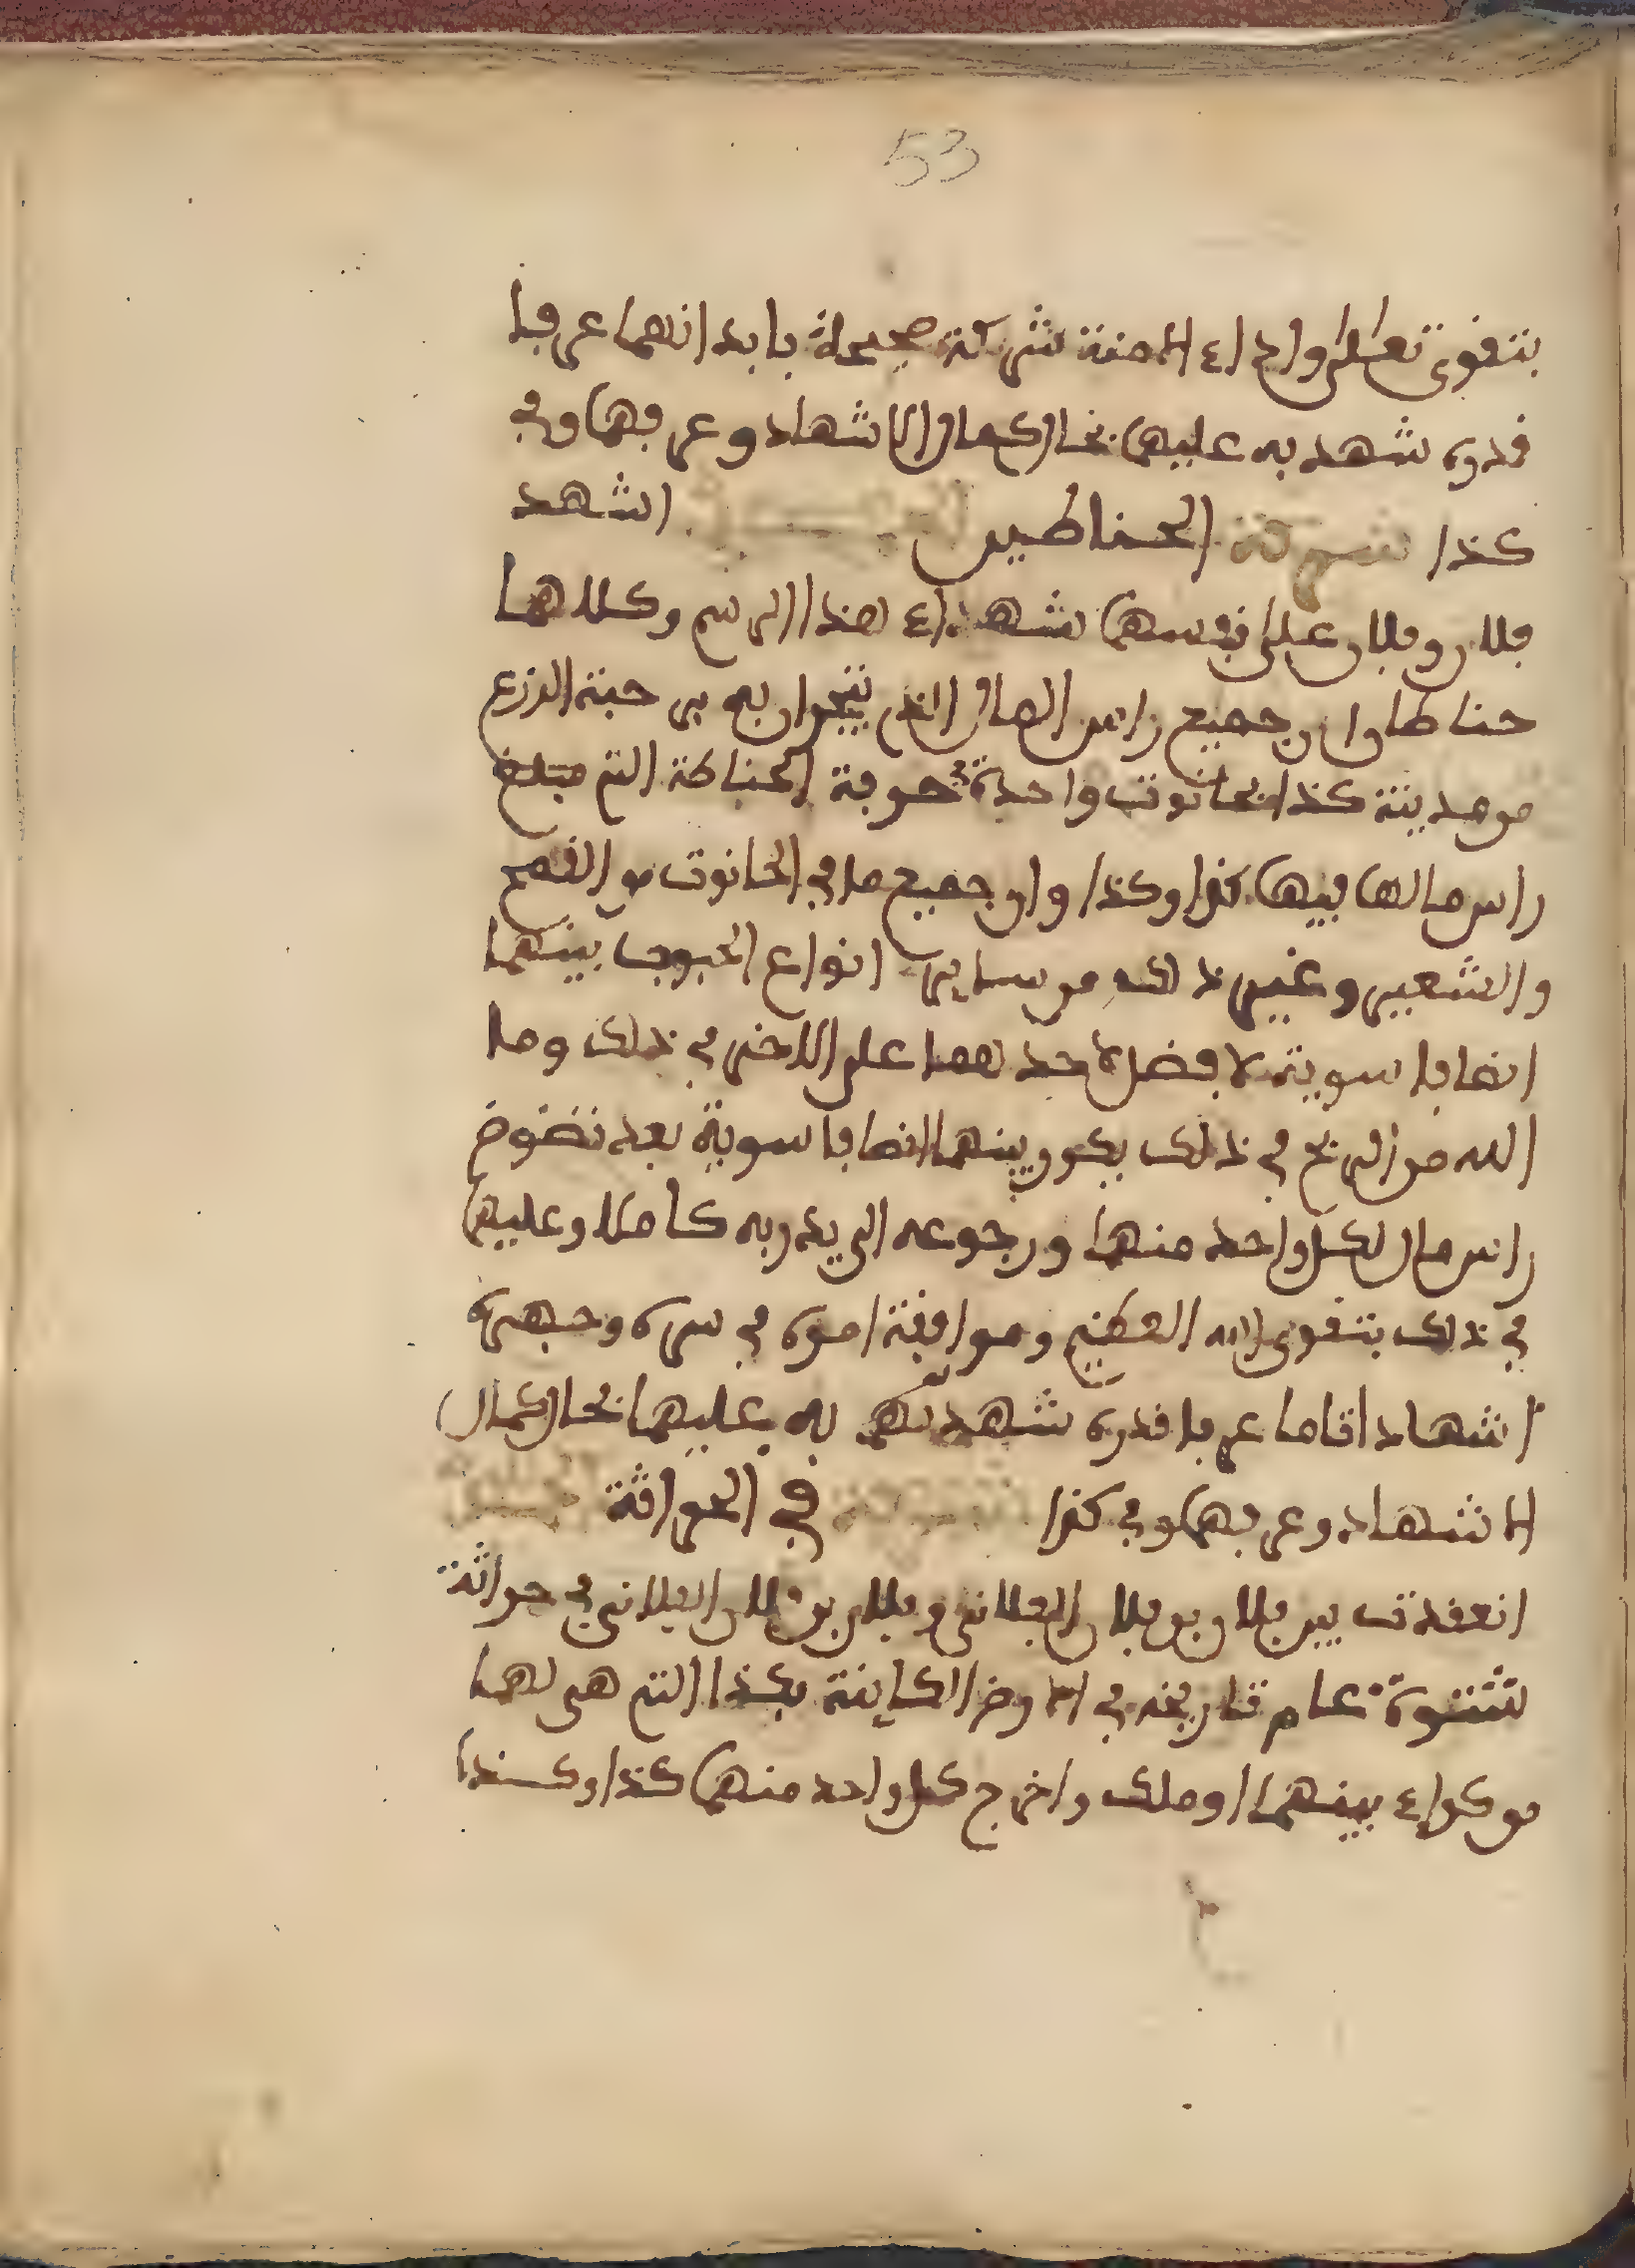 53
بتقوى تعالى واداء الامنة شركة صحيحة بابدانهما عرفا
قدره شهد به عليهما بحال كمال الاشهاد وعرفهما وفي
كذا شركة الحناطين اشهد
فلان وفلان على نفسهما شهداء هذا الرسم وكلاهما
حناطا وان جميع راس المال الذي يتجران به في حبة الزرع
من مدينة كذا بحانوت واحدة حرفة الحناطة التي مبلغ
راس مالهما فيها كذا وكذا وان جميع ما في الحانوت من القمح
والشعير وغير ذلك من ساير انواع الحبوب بينهما
انصافا سوية لا فضل لاحدهما على الاخر في ذلك وما
الله من الربح في ذلك يكون بينهما انصافا سوية بعد نضوض
راس مال لكل واحد منهما ورجوعه الى يد ربه كاملا وعليهما
في ذلك بتقوى الله العظيم وموافقة امره في سره وجهره
اشهادا تاما عرفا قدره شهد به عليهما بحال كمال
الاشهاد وعرفهما وفي كذا شركة في الحراثة
انعقدت بين فلان بن فلان الفلاني وفلان بن فلان الفلاني في حراثة
شتوة عام تاريخه في الارض الكاينة بكذا التي هي لهما
من كراء بينهما او ملك واخرج كل واحد منهما كذا وكذا